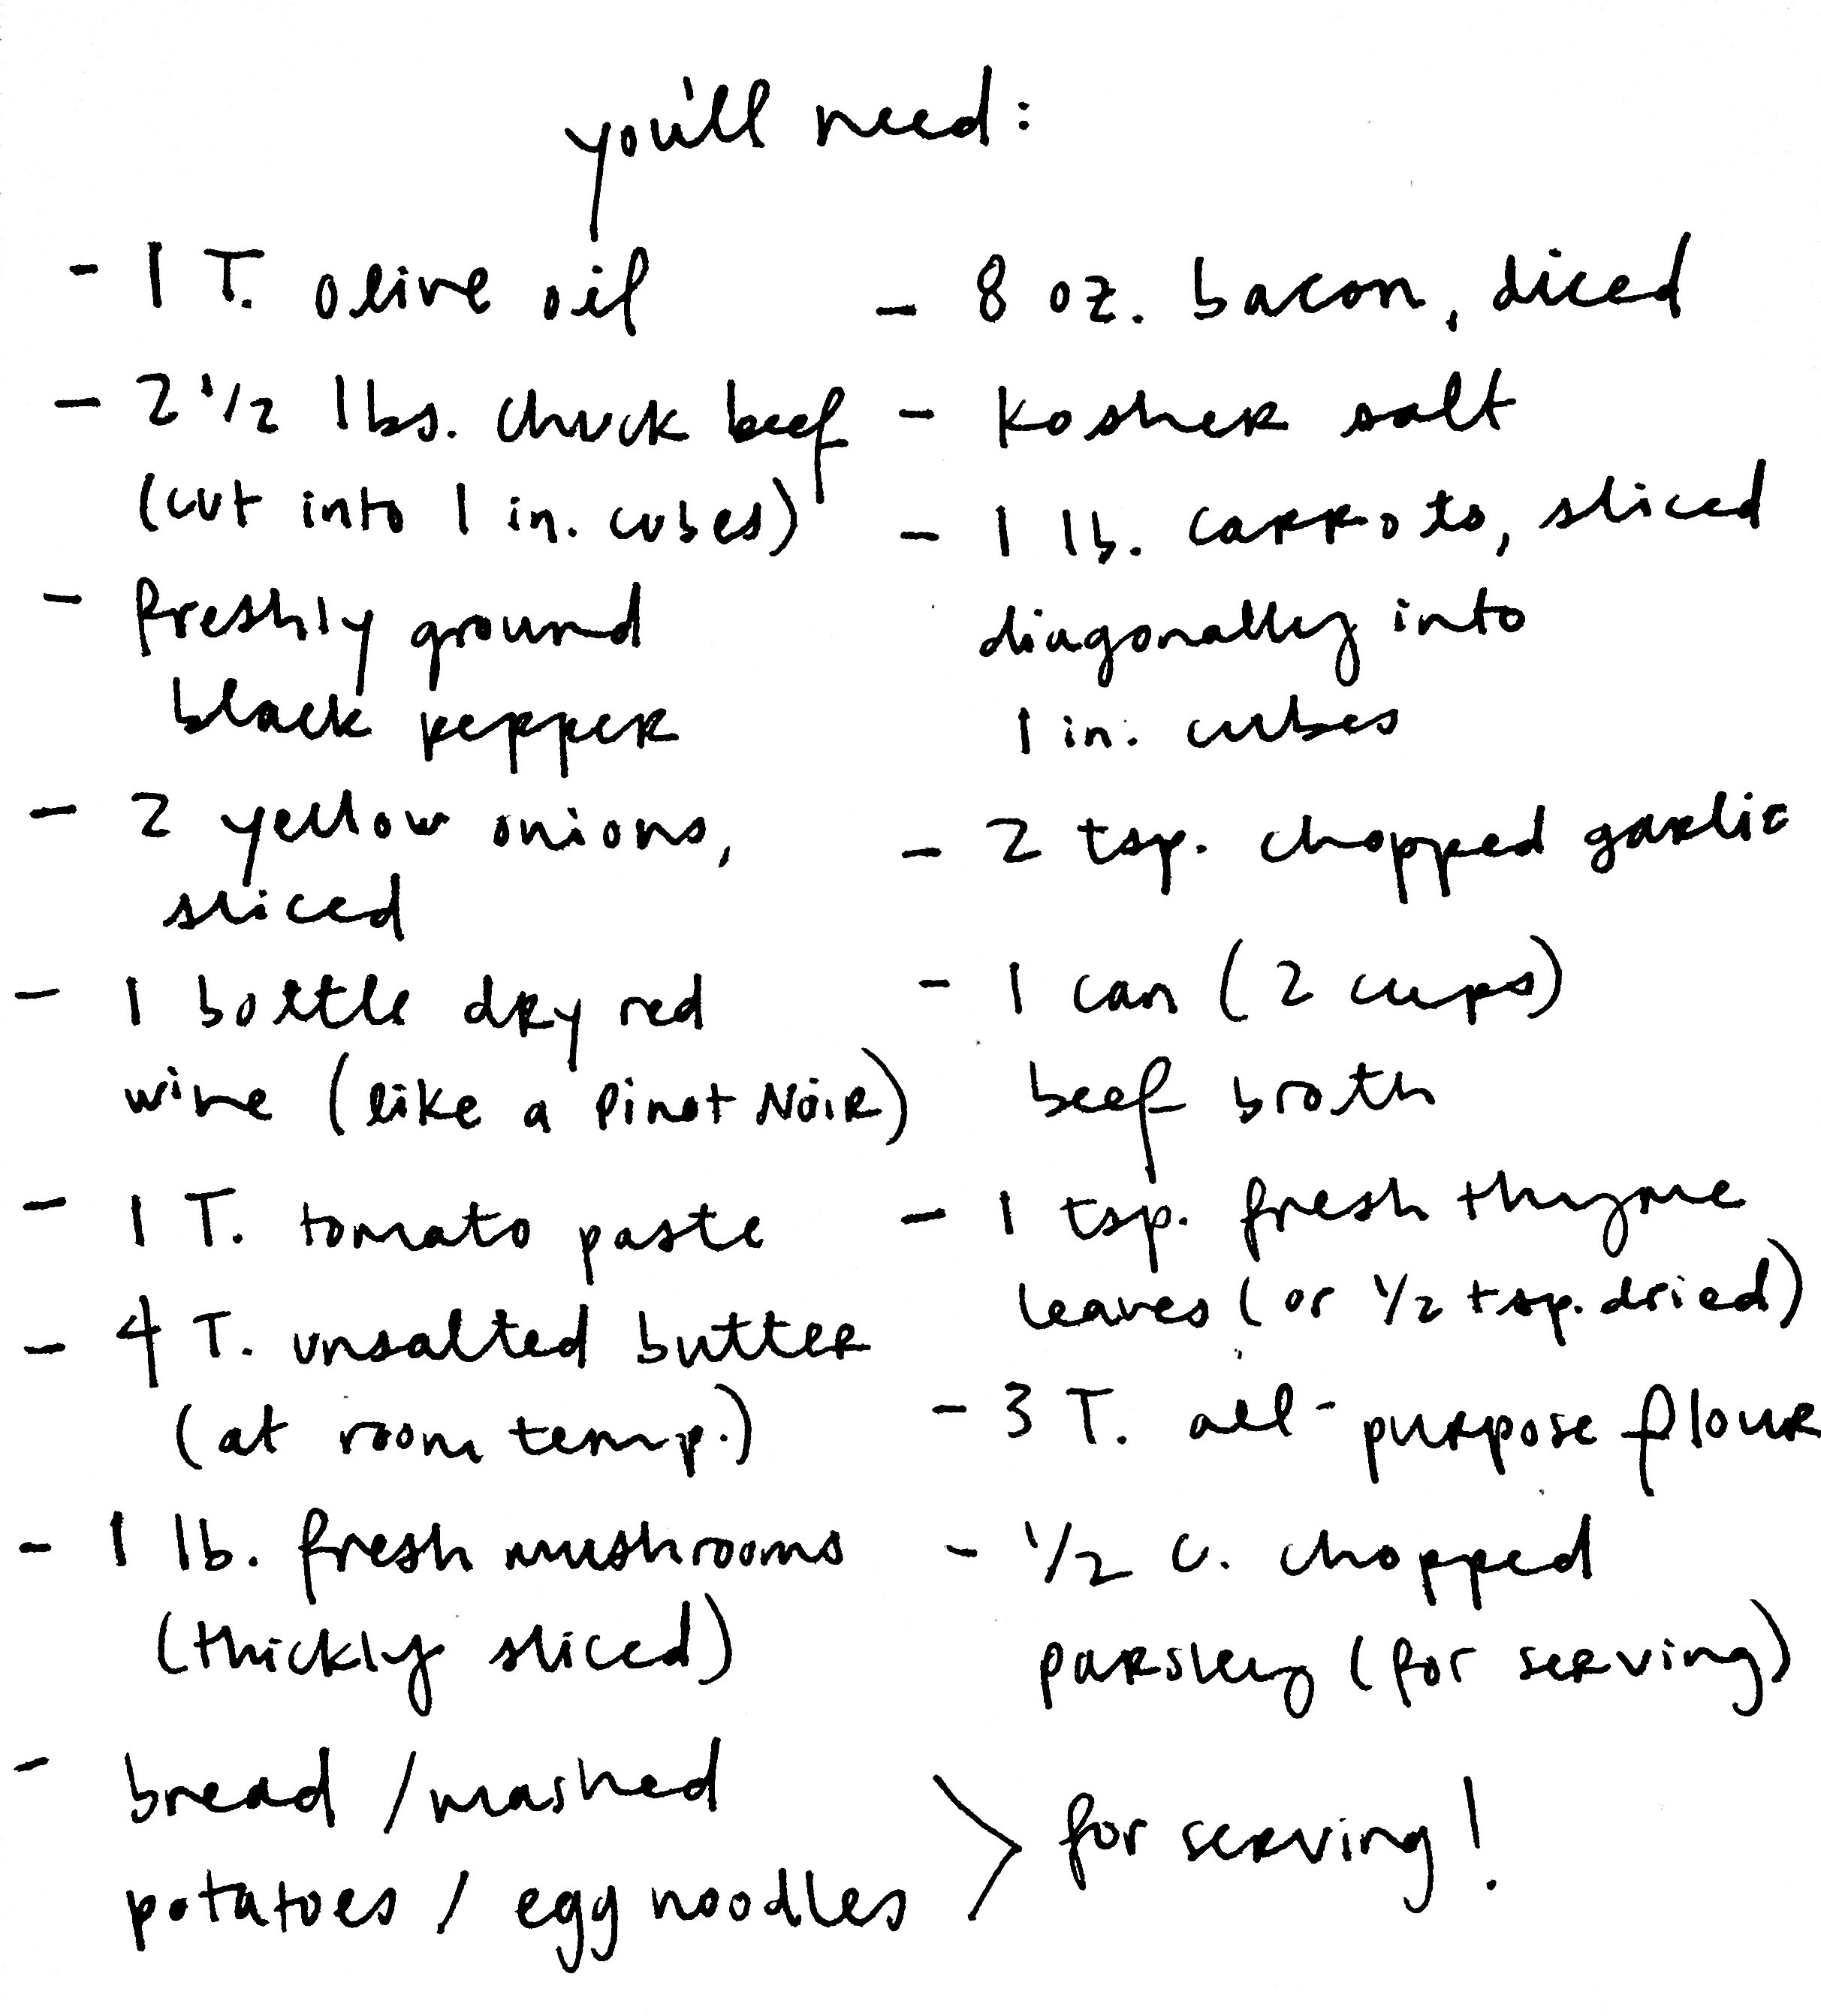 you'll need:
- 1 T. olive oil
- 2 1/2 lbs. chuck beef
(cut into 1 in. cubes)
- freshly ground
black pepper
- 2 yellow onions,
sliced
- 1 bottle dry red
wine (like a Pinot Noir)
- 1 T. tomato paste
- 4 T. unsalted butter
(at room temp.)
- 1 lb. fresh mushrooms
(thickly sliced)
- bread / mashed
potatoes / egg noodles
- 8 oz. bacon, diced
- Kosher salt
- 1 lb. carrots, sliced
diagonally into
1 in. cubes
- 2 tsp. chopped garlic
- 1 can (2 cups)
beef broth
- 1 tsp. fresh thyme
leaves (or 1/2 tsp. dried)
- 3 T. all-purpose flour
- 1/2 c. chopped
parsley (for serving)
> for serving!